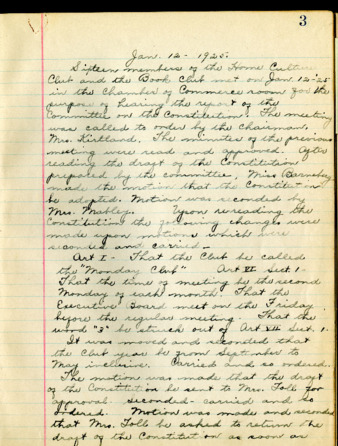 3
Jan. 12 - 1925.
Sixteen members of the Home Culture
Club and the Book Club met on Jan. 12-25
in the Chamber of Commerce room for the
purpose of hearing the report of the
Committee on the Constitution. The meeting
was called to order by the Chairman,
Mrs. Kirtland. The minutes of the previous
meeting were read and approved. After
reading the draft of the Constitution
prepared by the committee, Miss Barnaby
made the motion that the Constitution
be adopted. Motion was seconded by
Mrs. Mabley. Upon rereading the
Constitution the following changes were
made upon motions which were
seconded and carried -
Art I - That the Club be called
the "Monday Club" Art VI Sect. 1 -
That the time of meeting be the second
Monday of each month. That the
Executive Board meet on the Friday
before the regular meeting. That the
word "3" be struck out of Art Sect. 1.
It was moved and seconded that
the Club year be from September to
May inclusive. Carried and so ordered.
The motion was made that the draft
of the Constitution be sent to Mrs. Folts for
approval - seconded - carried and so
ordered. Motion was made and seconded
that Mrs. Folts be asked to return the
draft of the Constitution as soon as